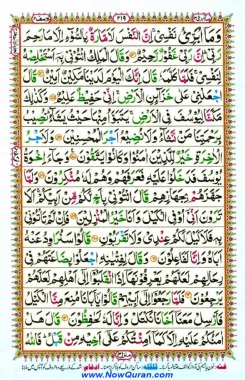 وَمَآ اُبَرِّئُ نَفْسِيْ اِنَّ النَّفْسَ لَاَمَّارَةٌۢ بِالسُّوْٓءِ اِلَّا مَا رَحِمَ
رَبِّيْ اِنَّ رَبِّيْ غَفُوْرٌ رَّحِيْمٌ وَقَالَ الْمَلِكُ ائْتُوْنِيْ بِهٖٓ اَسْتَخْلِصْهُ
لِنَفْسِيْ فَلَمَّا كَلَّمَهٗ قَالَ اِنَّكَ الْيَوْمَ لَدَيْنَا مَكِيْنٌ اَمِيْنٌ قَالَ
اجْعَلْنِيْ عَلٰى خَزَآئِنِ الْاَرْضِ اِنِّيْ حَفِيْظٌ عَلِيْمٌ وَكَذٰلِكَ
مَكَّنَّا لِيُوْسُفَ فِي الْاَرْضِ يَتَبَوَّاُ مِنْهَا حَيْثُ يَشَآءُ نُصِيْبُ
بِرَحْمَتِنَا مَنْ نَّشَآءُ وَلَا نُضِيْعُ اَجْرَ الْمُحْسِنِيْنَ وَلَاَجْرُ
الْاٰخِرَةِ خَيْرٌ لِّلَّذِيْنَ اٰمَنُوْا وَكَانُوْا يَتَّقُوْنَ وَجَآءَ اِخْوَةُ
يُوْسُفَ فَدَخَلُوْا عَلَيْهِ فَعَرَفَهُمْ وَهُمْ لَهٗ مُنْكِرُوْنَ وَلَمَّا
جَهَّزَهُمْ بِجَهَازِهِمْ قَالَ ائْتُوْنِيْ بِاَخٍ لَّكُمْ مِّنْ اَبِيْكُمْ اَلَا
تَرَوْنَ اَنِّيْٓ اُوْفِي الْكَيْلَ وَاَنَا خَيْرُ الْمُنْزِلِيْنَ فَاِنْ لَّمْ تَاْتُوْنِيْ
بِهٖ فَلَا كَيْلَ لَكُمْ عِنْدِيْ وَلَا تَقْرَبُوْنِ قَالُوْا سَنُرَاوِدُ عَنْهُ
اَبَاهُ وَاِنَّا لَفٰعِلُوْنَ وَقَالَ لِفِتْيٰنِهِ اجْعَلُوْا بِضَاعَتَهُمْ فِيْ
رِحَالِهِمْ لَعَلَّهُمْ يَعْرِفُوْنَهَآ اِذَا انْقَلَبُوْٓا اِلٰٓى اَهْلِهِمْ لَعَلَّهُمْ
يَرْجِعُوْنَ فَلَمَّا رَجَعُوْٓا اِلٰٓى اَبِيْهِمْ قَالُوْا يٰٓاَبَانَا مُنِعَ مِنَّا الْكَيْلُ
فَاَرْسِلْ مَعَنَآ اَخَانَا نَكْتَلْ وَاِنَّا لَهٗ لَحٰفِظُوْنَ قَالَ هَلْ
اٰمَنُكُمْ عَلَيْهِ اِلَّا كَمَآ اَمِنْتُكُمْ عَلٰٓى اَخِيْهِ مِنْ قَبْلُ فَاللّٰهُ
www.NowQuran.com